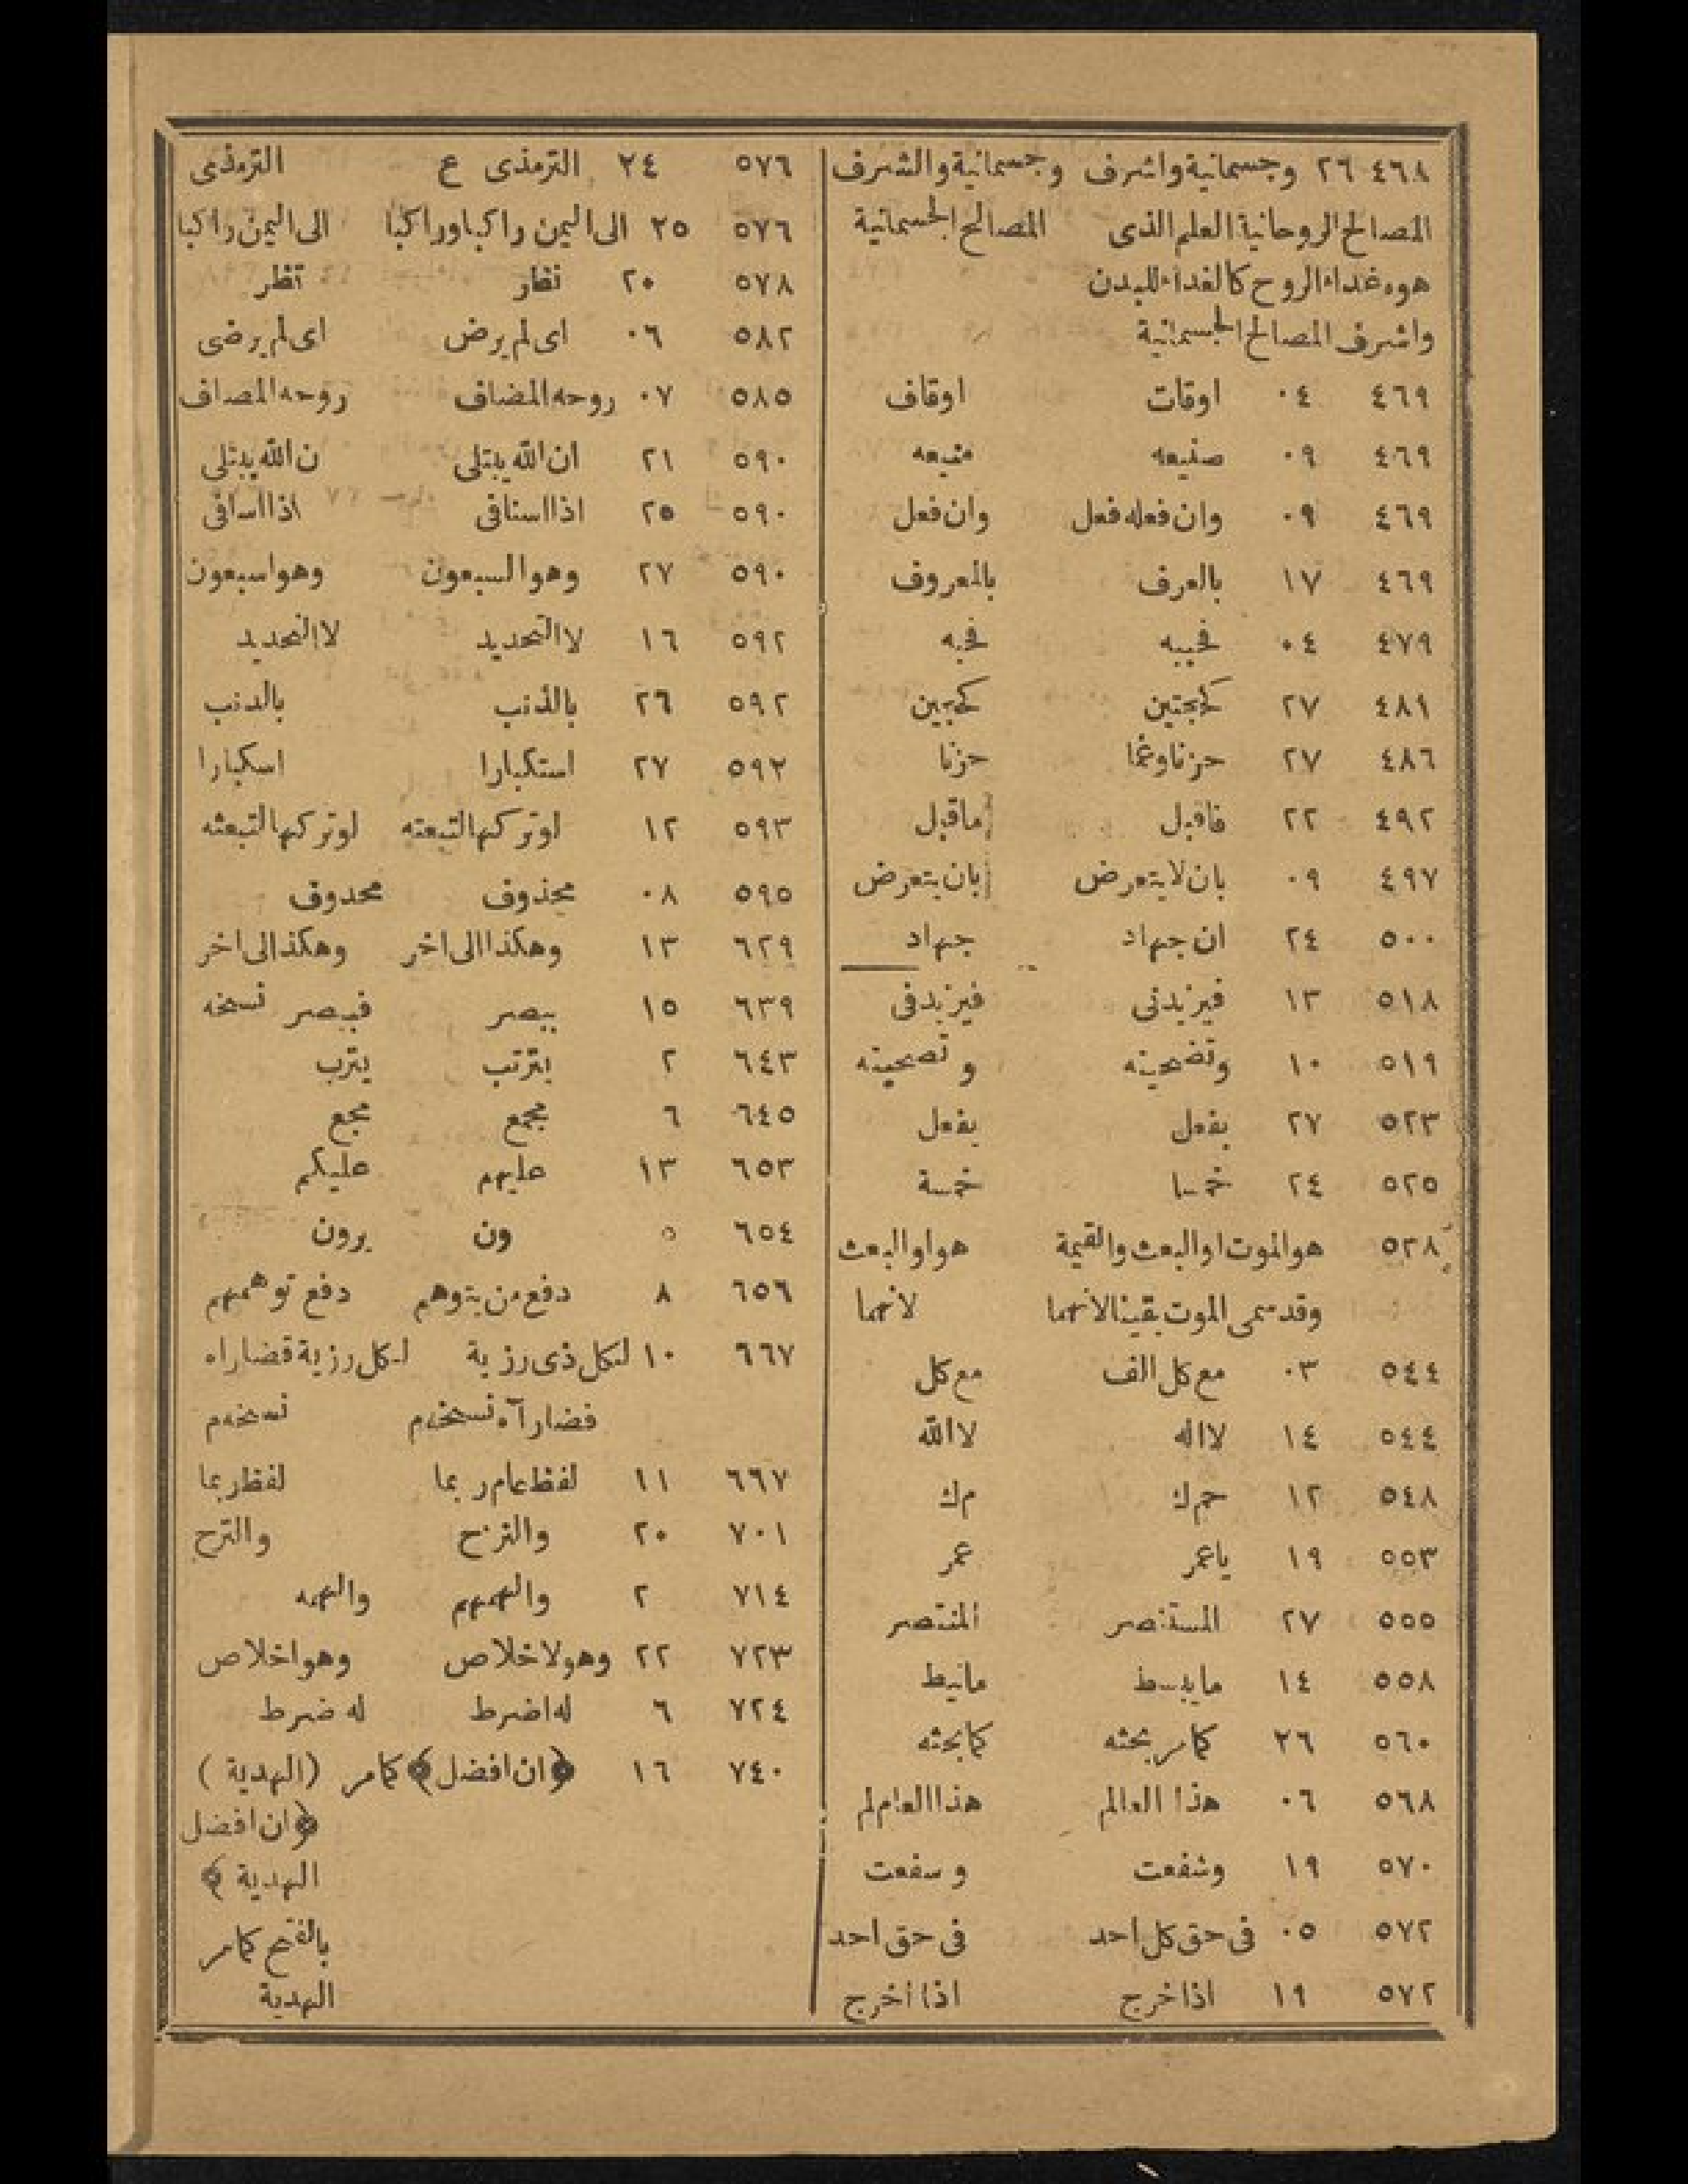 ٤٦٨ ٢٦ وجسمانية واشرف وجسمانية والشرف
المصالح الروحانية العلم الذى المصالح الجسمانية
هوه غداء الروح كالغداء للبدن
واشرف المصالح الجسمانية
٤٦٩ ٠٤ اوقات اوقاف
٤٦٩ ٠٩ صنيعه منيعه
٤٦٩ ٠٩ وان فعله فعل وان فعل
٤٦٩ ١٧ بالعرف بالمعروف
٤٧٩ ٠٤ فحييه فحبه
٤٨١ ٢٧ كجتين كحبين
٤٨٦ ٢٧ حزنا وغما حزنا
٤٩٢ ٢٢ فاقبل ماقبل
٤٩٧ ٠٩ بان لا يتعرض بان يتعرض
٥٠٠ ٢٤ ان جهاد جهاد
٥١٨ ١٣ فيزيدنى فيزيدفى
٥١٩ ١٠ وتضحيته وتصحيته
٥٢٣ ٢٧ يفعل بفعل
٥٢٥ ٢٤ خمسا خمسة
٥٢٨ هو الموت او البعث والقيمة هو او البعث
وقد سمى الموت يقينا لانهما لانهما
٥٤٤ ٠٣ مع كل الف مع كل
٥٤٤ ١٤ لا اله لا الله
٥٤٨ ١٢ حم ك م ك
٥٥٣ ١٩ يا عمر عمر
٥٥٥ ٢٧ المستنصر المنتصر
٥٥٨ ١٤ مايبسط مانيط
٥٦٠ ٢٦ كمامر بحثه كمابحثه
٥٦٨ ٠٦ هذا العالم هذا العام لم
٥٧٠ ١٩ وشفعت وسفعت
٥٧٢ ٠٥ فى حق كل احد فى حق احد
٥٧٢ ١٩ اذا خرج اذا أخرج
٥٧٦ ٢٤ الترمذى ع الترمذى
٥٧٦ ٢٥ الى اليمن راكبا وراكبا الى اليمن راكبا
٥٧٨ ٢٠ نظار تظر
٥٨٢ ٠٦ اى لم يرض اى لم يرضى
٥٨٥ ٠٧ روحه المضاف روحه المصاف
٥٩٠ ٢١ ان الله يبتلى ن الله يبتلى
٥٩٠ ٢٥ اذا استاقى اذا اساقى
٥٩٠ ٢٧ وهو السبعون وهو اسبعون
٥٩٢ ١٦ لا التحديد لا التحديد
٥٩٢ ٢٦ بالذنب بالدنب
٥٩٢ ٢٧ استكبارا اسكبارا
٥٩٣ ١٢ اوتركها لتبعته اوتركها لتبعثه
٥٩٥ ٠٨ محذوف محدوف
٦٢٩ ١٣ وهكذا الى اخر وهكذ الى اخر
٦٣٩ ١٥ يبصر فيبصر نسخه
٦٤٣ ٢ يترتب يترب
٦٤٥ ٦ مجمع مجع
٦٥٣ ١٣ عليهم عليكم
٦٥٤ ٥ ون يرون
٦٥٦ ٨ دفع من يتوهم دفع توهمهم
٦٦٧ ١٠ لكل ذى رزية لكل رزية قضاراه
قضاراآه نسخه م نسخه م
٦٦٧ ١١ لفظ عام ربما لفظ ربما
٧٠١ ٢٠ والنزح والترح
٧١٤ ٢ والهمهم والهمه
٧٢٣ ٢٢ وهو لاخلاص وهو اخلاص
٧٢٤ ٦ له اضرط له ضرط
٧٤٠ ١٦ ﴿ان افضل﴾ كمامر (الهدية)
﴿ان افضل
الهدية﴾
بالفتح كمامر
الهدية